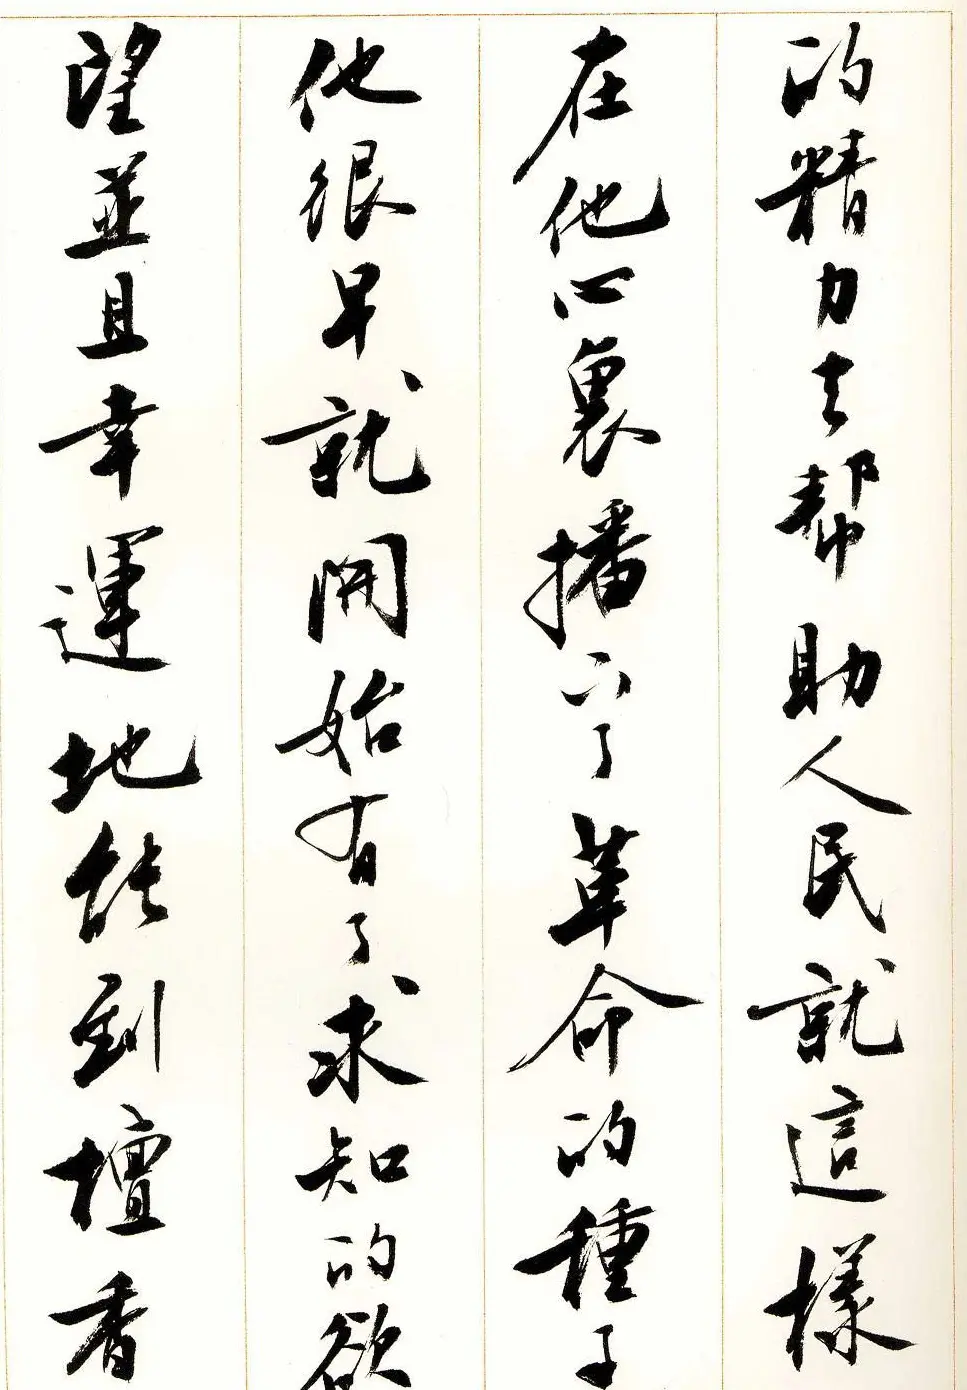 的精力去幫助人民就這樣
在他心裏播下了革命的種子
他很早就開始有了求知的欲
望並且幸運地能到壇香